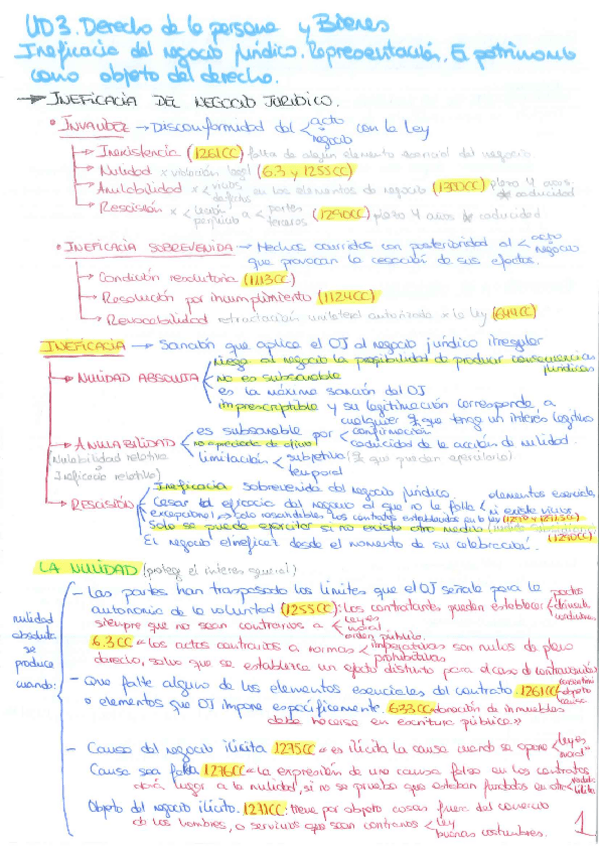 UD3. Derecho de la persona y Bienes
Ineficacia del negocio jurídico. Representación. El patrimonio
como objeto del derecho.
→ INEFICACIA DEL NEGOCIO JURIDICO.
• INVALIDEZ → Disconformidad del < acto negocio con la ley
→ Inexistencia (1261CC) falta de algún elemento esencial del negocio
→ Nulidad x violación legal (6.3 y 1255CC)
→ Anulabilidad x < vicios defectos en los elementos de negocio (1300CC) plazo 4 años de caducidad
→ Rescisión x < lesión perjuicio a < partes terceros (1290CC) plazo 4 años de caducidad
• INEFICACIA SOBREVENIDA → Hechos ocurridos con posterioridad al < acto negocio
que provocan la cesación de sus efectos.
→ Condición resolutoria (1113CC)
→ Resolución por incumplimiento (1124CC)
→ Revocabilidad retractación unilateral autorizada x la ley (644CC)
INEFICACIA → Sanción que aplica el OJ al negocio jurídico irregular
→ NULIDAD ABSOLUTA
niega al negocio la posibilidad de producir consecuencias jurídicas
no es subsanable
es la máxima sanción del OJ
imprescriptible y su legitimación corresponde a
cualquier que tenga un interés legítimo
→ ANULABILIDAD
(Nulabilidad relativa
o
Ineficacia relativa)
es subsanable por < confirmación caducidad de la acción de nulidad.
no opera de oficio
limitación < subjetiva ( que pueden ejercitarlo) temporal
→ RESCISIÓN
Ineficacia sobrevenida del negocio jurídico
Cesar la eficacia del negocio al que no le falta < elementos esenciales ni existe vicios
excepcional → solo rescindible los contratos establecidos en la ley (1290 y 1291CC)
Solo se puede ejercitar si no existe otro medio
El negocio es ineficaz desde el momento de su celebración. (1290CC)
LA NULIDAD (protege el interes general)
nulidad
absoluta
se
produce
cuando:
- Las partes han traspasado los límites que el OJ señala para la
autonomía de la voluntad (1255CC): los contratantes pueden establecer < pactos cláusulas condiciones
siempre que no sean contrarios a < leyes moral orden público.
6.3CC «los actos contrarios a normas < imperativas prohibitivas son nulos de pleno
derecho, salvo que se establezca un efecto distinto para el caso de contravención»
- Que falte alguno de los elementos esenciales del contrato 1261CC < consentimiento objeto causa
o elementos que OJ impone específicamente. 633CC «donación de inmuebles
debe hacerse en escritura pública»
- Causa del negocio ilícita 1275CC «es ilícita la causa cuando se opone < leyes moral»
Causa sea falsa 1276CC «la expresión de una causa falsa en los contratos
dará lugar a la nulidad, si no se prueba que estaban fundados en otra < verdadera lícita
Objeto del negocio ilícito. 1271CC: tiene por objeto cosas fuera del comercio
de los hombres, o servicios que sean contrarios < ley buenas costumbres.
1